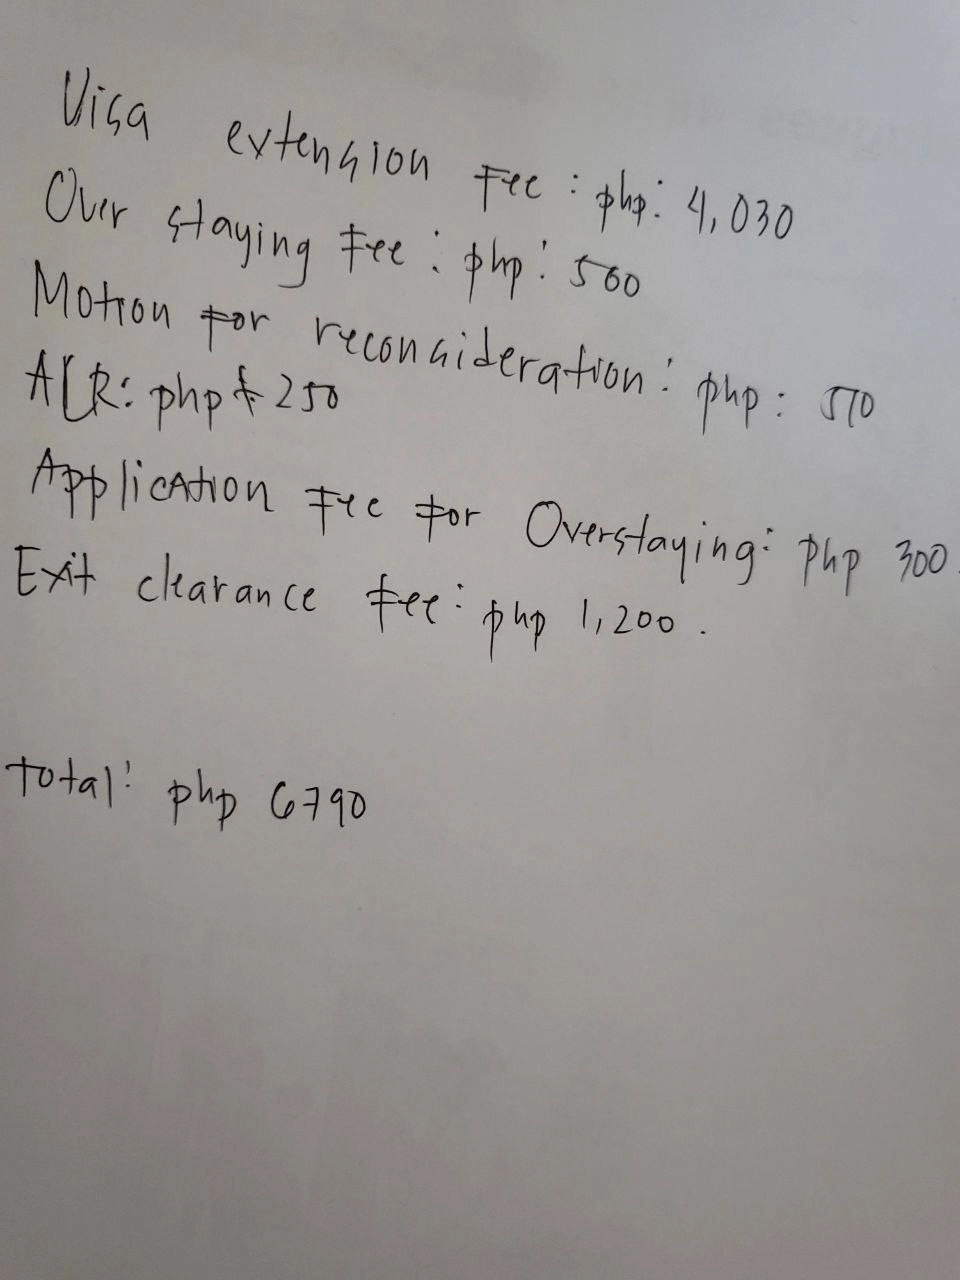 Visa extension Fee : php: 4,030
Over staying Fee : php: 500
Motion for reconsideration: php: 510
ACR: php 250
Application Fee for Overstaying: php 300.
Exit clearance Fee: php 1,200.
Total: php 6790